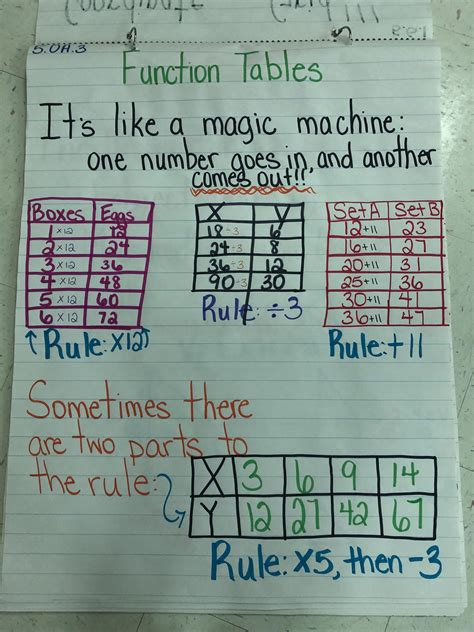 5.OA.3
Function Tables
It's like a magic machine:
one number goes in, and another
comes out!!!
Boxes Eggs
1 x12 12
2 x12 24
3 x12 36
4 x12 48
5 x12 60
6 x12 72
↑ Rule: x12
X Y
18 ÷3 6
24 ÷3 8
36 ÷3 12
90 ÷3 30
Rule: ÷3
Set A Set B
12+11 23
16+11 27
20+11 31
25+11 36
30+11 41
36+11 47
Rule: +11
Sometimes there
are two parts to
the rule:
X 3 6 9 14
Y 12 27 42 67
Rule: x5, then -3